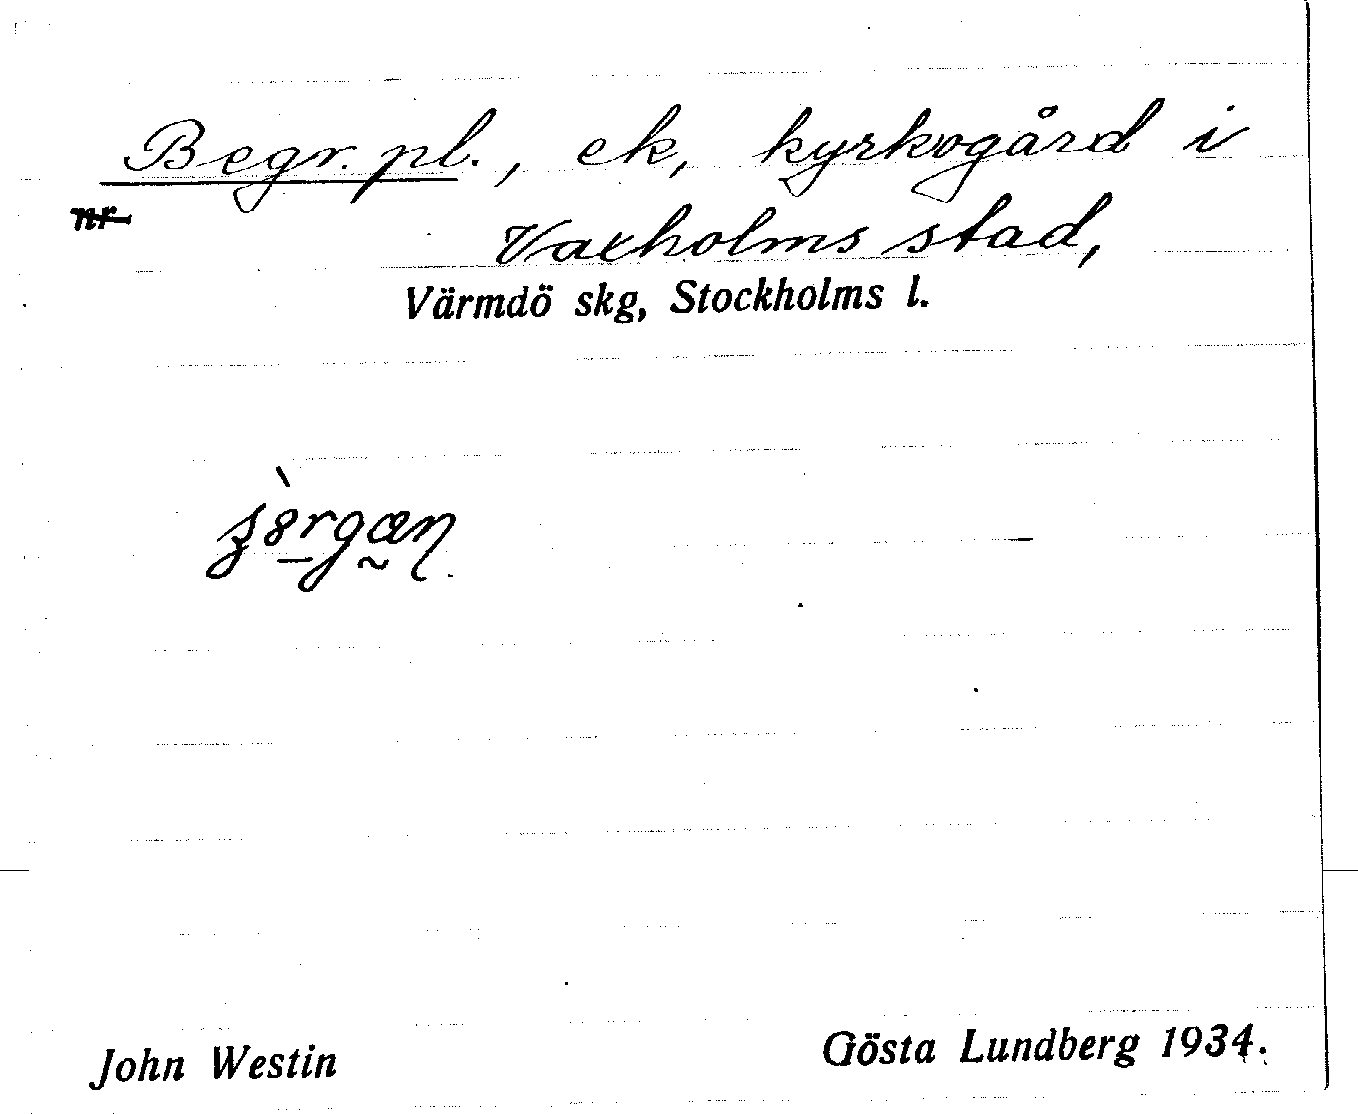 Begr. pl., ek, kyrkogård i
nr
Vaxholms stad,
Värmdö skg, Stockholms l.
John Westin
Gösta Lundberg 1934.